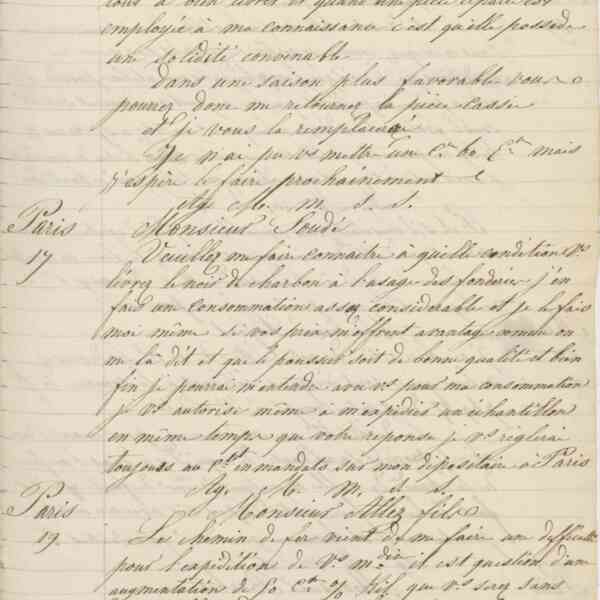 vous à bien livrer et quand une pièce épaisse est
employée à ma connaissance c'est qu'elle possède
une solidité convenable
Dans une saison plus favorable vous
pourrez donc me retourner la pièce cassé
et je vous la remplacerai
Je n'ai pu vs mettre un
mais
j'espère le faire prochainement
Ag. M. m. s. s.
Paris Monsieur Soudé
17 Veuillez me faire connaitre à quelle condition vs
livrez le noir de charbon à l'usage des fonderies j'en
fais une consommations assez considerable et je le fais
moi même si vos prix m'offrent avantage comme on
me l'a dit et que le poussier soit de bonne qualité et bien
fin je pourrai m'entendre avec vs pour ma consommation
je vs autorise même à m'expédier un échantillon
en même temps que votre reponse je vs règlerai
toujours au en mandats sur mon dépositaire à Paris
Ag. M. m. s. s.
Paris Monsieur Allez fils
19. Le chemin de fer vient de me faire un difficulté
pour l'expédition de vs mdises il est question d'une
augmentation de 50 % que vs serez sans